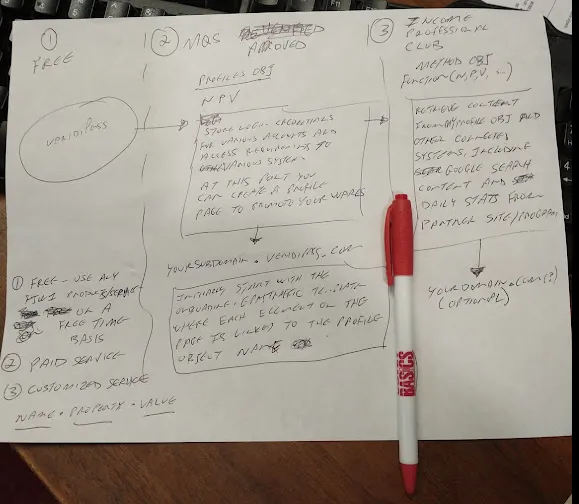 1
FREE
VENDIPASS
2 MQS
APPROVED
PROFILES OBJ
N P V
STORE LOGIN CREDENTIALS
FOR VARIOUS ACCOUNTS AND
ACCESS REQUIREMENTS TO
VARIOUS SYSTEMS.
AT THIS POINT YOU
CAN CREATE A PROFILE
PAGE TO PROMOTE YOUR WARES
YOURSUBDOMAIN.VENDIPASS.COM
INITIALLY START WITH THE
TEMPLATE
WHERE EACH ELEMENT ON THE
PAGE IS LINKED TO THE PROFILE
OBJECT NAME
3 INCOME
PROFESSIONAL
CLUB
METHOD OBJ
FUNCTION(N,P,V, ...)
RETRIEVE CONTENT
FROM PROFILE OBJ AND
OTHER CONNECTED
SYSTEMS, INCLUDING
GOOGLE SEARCH
CONTENT AND
DAILY STATS FROM
PARTNER SITE/PROGRAM
YOURDOMAIN.COM
(OPTIONAL)
1 FREE - USE ANY
PRODUCT/SERVICE
ON A
FREE TIME
BASIS
2 PAID SERVICE
3 CUSTOMIZED SERVICE
NAME • PROPERTY • VALUE
BASICS